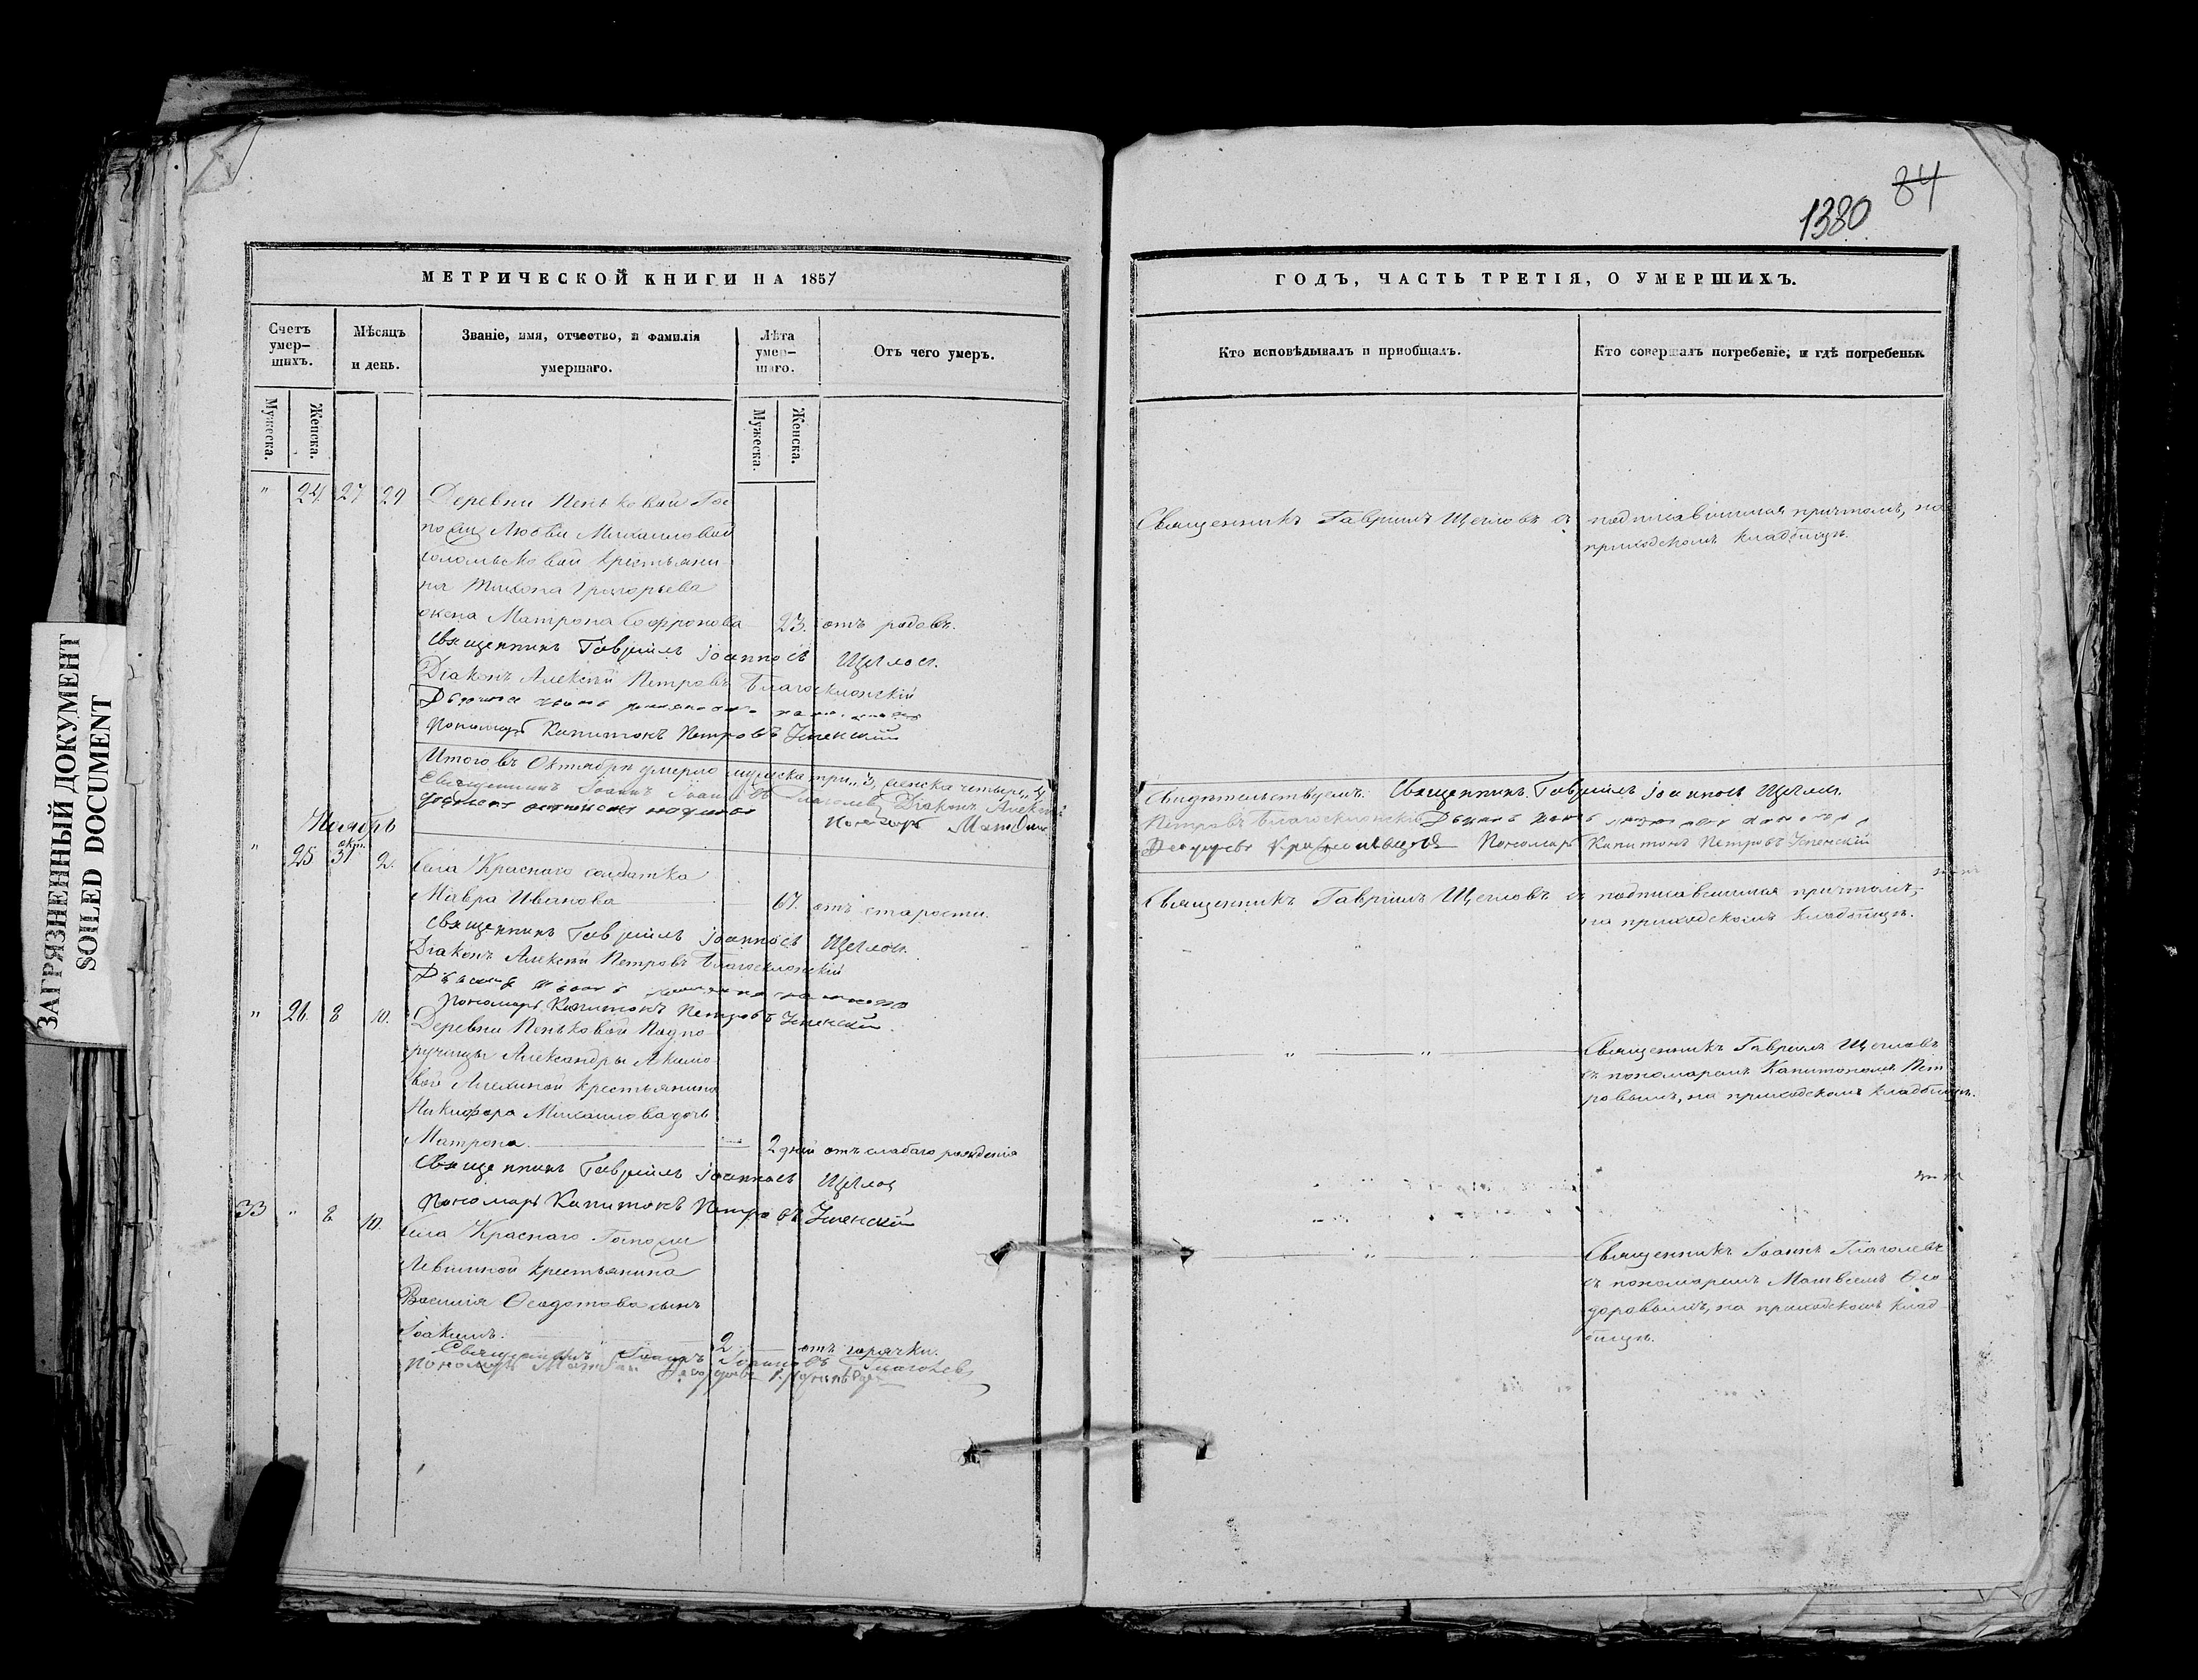 1380 84
ЗАГРЯЗНЕННЫЙ ДОКУМЕНТ
SOILED DOCUMENT
МЕТРИЧЕСКОЙ КНИГИ НА 1857
Счетъ умер-шихъ.
Мужеска.
Женска.
Мѣсяцъ и день.
Званіе, имя, отчество, и фамилія умершаго.
Лѣта умер-шаго.
Мужеска.
Женска.
Отъ чего умеръ.
" 24 27 29 Деревни Пеньковой Гос
пожи Любви Михаиловой
крестьяни
на Тихона Григорьева
жена Матрона Софронова 23. отъ родовъ.
Священникъ Гавріилъ Іоанновъ Щегловъ.
Діаконъ Алексѣй Петровъ Благосклонскій
Пономарь Капитонъ Петровъ Успенскій
Итого въ Октябрѣ умерло мужеска три „3, женска четыре „4
Священникъ Іоаннъ Іоанновъ Глаголевъ Діаконъ Алексѣй
Пономарь Матвѣй
Ноябрь
" 25 окт. 31 2. Села Краснаго солдатка
Мавра Иванова 67. отъ старости.
Священникъ Гавріилъ Іоанновъ Щегловъ.
Діаконъ Алексѣй Петровъ Благосклонскій
Пономарь Капитонъ Петровъ Успенскій.
" 26. 8 10. Деревни Пеньковой Подпо
ручицы Александры Акимо
вой крестьянина
Никифора Михаилова дочь
Матрона. 2 дней отъ слабаго рожденія
Священникъ Гавріилъ Іоанновъ Щегловъ
Пономарь Капитонъ Петровъ Успенскій
33 " 8 10. Села Краснаго Госпожи
Левшиной крестьянина
Василія Ѳеодотова сынъ
Іоакимъ. 2 отъ горячки.
Священникъ Іоаннъ Іоанновъ Глаголевъ
Пономарь Матвѣй Ѳеодоровъ
ГОДЪ, ЧАСТЬ ТРЕТІЯ, О УМЕРШИХЪ.
Кто исповѣдывалъ и пріобщалъ.
Кто совершалъ погребеніе, и гдѣ погребены.
Священникъ Гавріилъ Щегловъ съ подписавшимся причтомъ, на
приходскомъ кладбищѣ.
Свидѣтельствуемъ: Священникъ Гавріилъ Іоанновъ Щегловъ.
Петровъ Благосклонскій
Ѳеодоровъ Пономарь Капитонъ Петровъ Успенскій
Священникъ Гавріилъ Щегловъ съ подписавшимся причтомъ,
на приходскомъ кладбищѣ.
" " Священникъ Гавріилъ Щегловъ
съ пономаремъ Капитономъ Пет
ровымъ, на приходскомъ кладбищѣ.
" " Священникъ Іоаннъ Глаголевъ
съ пономаремъ Матвѣемъ Ѳео
доровымъ, на приходскомъ клад
бищѣ.